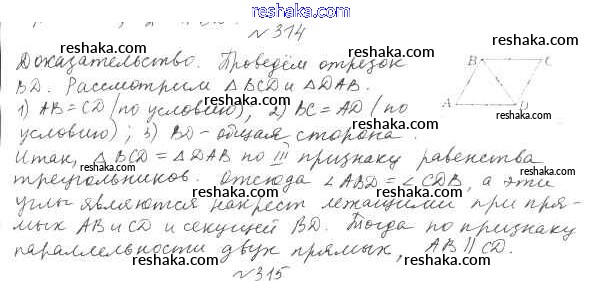 reshak.com
№314
reshaka.com
Доказательство. Проведём отрезок
reshaka.com reshaka.com
BD. Рассмотрим △BCD и △DAB.
B C
reshaka.com
1) AB = CD (по условию), 2) BC = AD (по
A D
условию); 3) BD - общая сторона.
reshaka.com reshaka.com
Итак, △BCD = △DAB по III признаку равенства
reshaka.com
треугольников. Отсюда ∠ABD = ∠CDB, а эти
reshaka.com reshaka.com
углы являются накрест лежащими при пря-
reshaka.com
мых AB и CD и секущей BD. Тогда по признаку
reshaka.com reshaka.com
параллельности двух прямых, AB || CD.
reshaka.com
№315